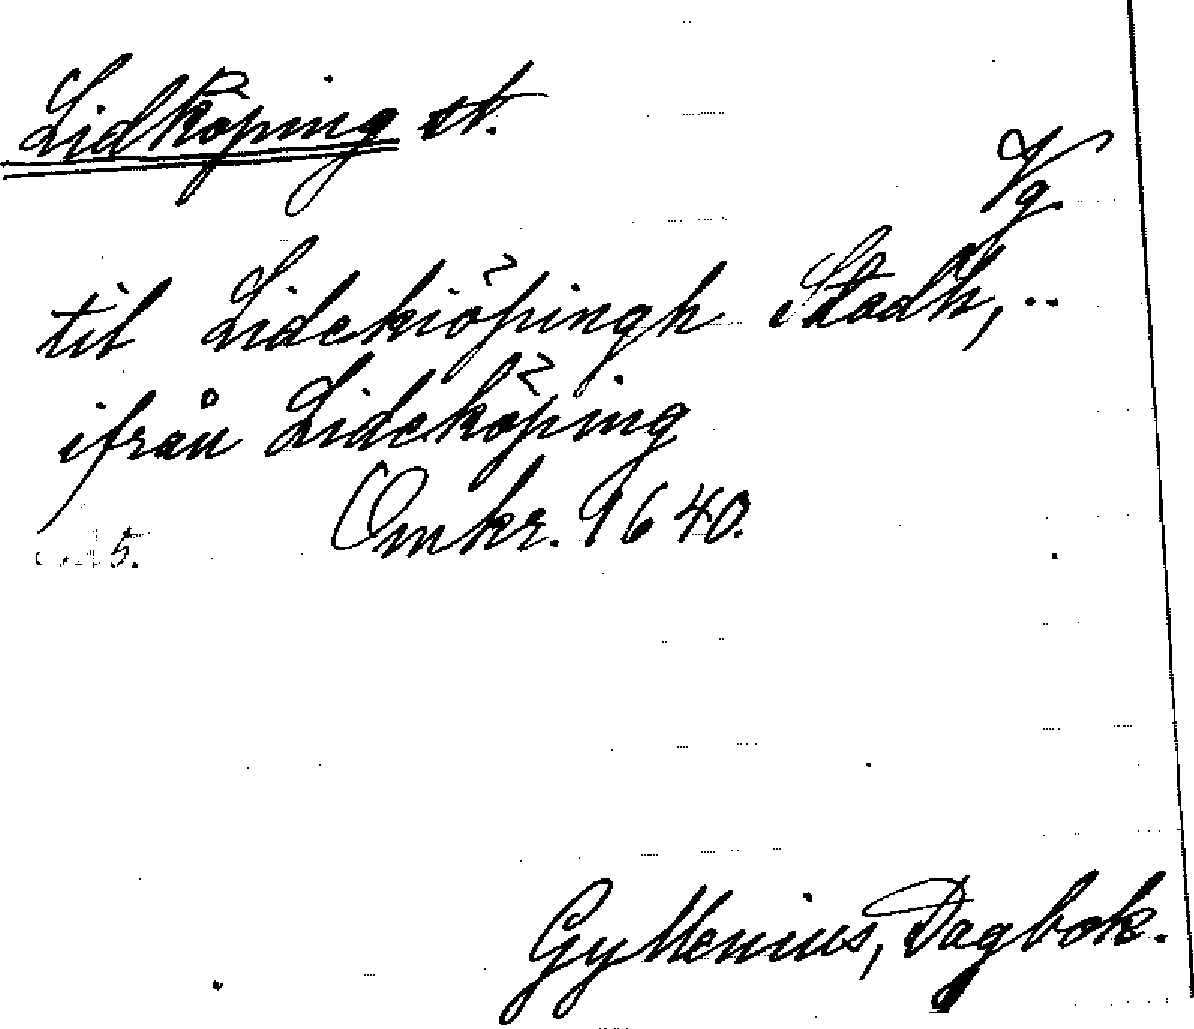 Lidköping st.
Vg.
til Lidekiöpingh Stadh, ..
ifrån Lideköping
Omkr. 1640.
5.
Gyllenius, Dagbok.